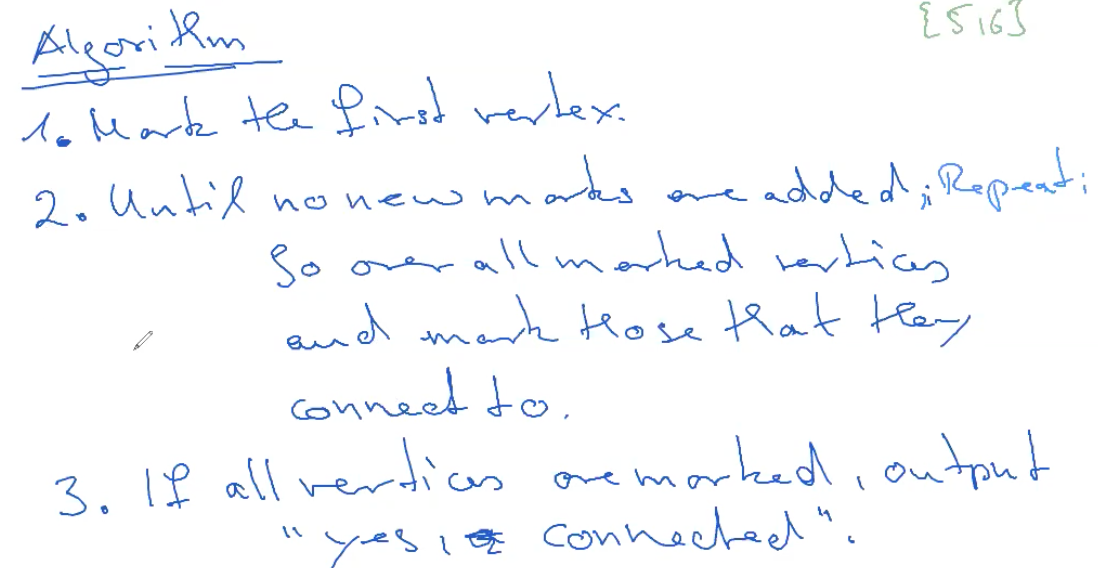 Algorithm
{5,6}
1. Mark the first vertex.
2. Until no new marks are added; Repeat:
Go over all marked vertices
and mark those that they
connect to.
3. If all vertices are marked, output
"yes, connected".